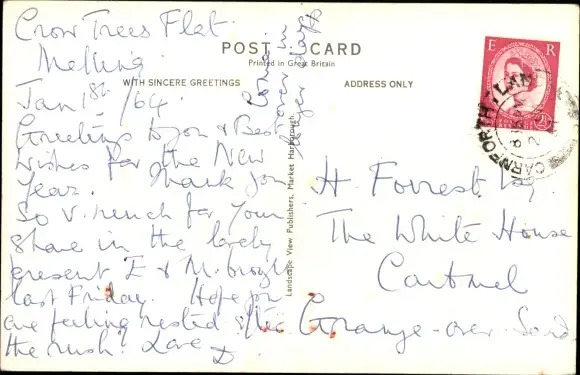 Crow Trees Flat
Melling
Jan 1st /64.
Greetings to you & Best
Wishes for the New
Year. Thank you
So v. much for your
Share in the lovely
present E & M. brought
last Friday. Hope you
are feeling rested after
the rush! Love
D
POST CARD
Printed in Great Britain
WITH SINCERE GREETINGS
ADDRESS ONLY
Landscape View Publishers, Market Harborough.
E R
CARNFORTH LAN
H. Forrest Esq.
The White House
Cartmel
Grange-over-Sands